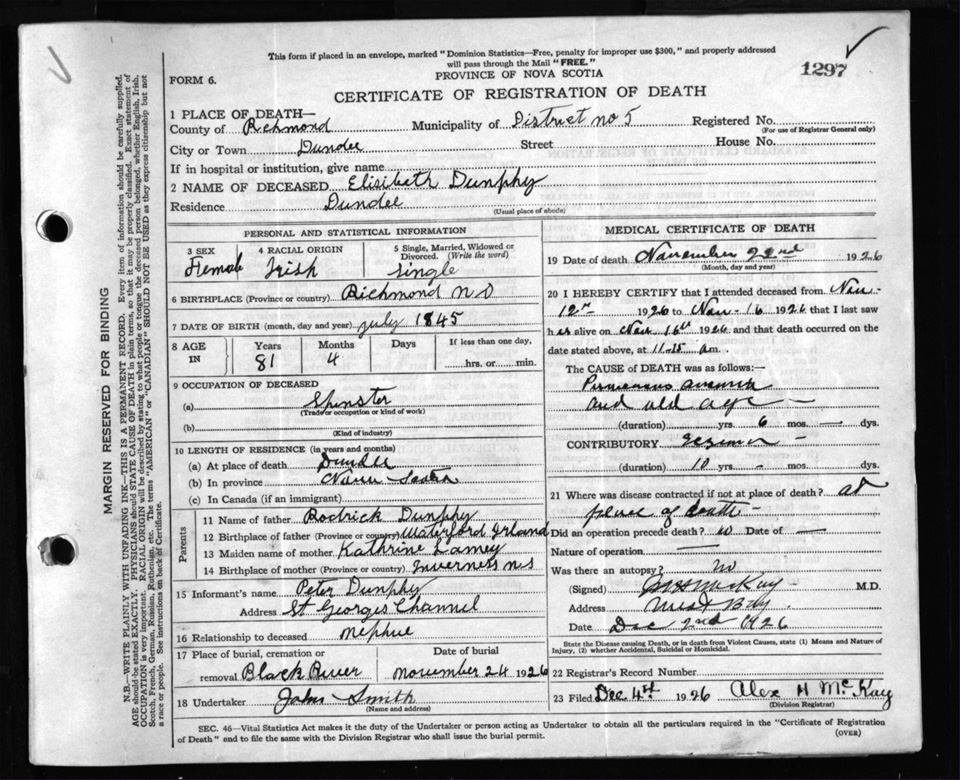 This form if placed in an envelope, marked "Dominion Statistics—Free, penalty for improper use $300," and properly addressed
will pass through the Mail "FREE."
1297
FORM 6.
PROVINCE OF NOVA SCOTIA
CERTIFICATE OF REGISTRATION OF DEATH
1 PLACE OF DEATH—
County of Richmond Municipality of District no 5 Registered No.
(For use of Registrar General only)
City or Town Dundee Street House No.
If in hospital or institution, give name
2 NAME OF DECEASED Elisibeth Dunphy
Residence Dundee
(Usual place of abode)
PERSONAL AND STATISTICAL INFORMATION
3 SEX Female
4 RACIAL ORIGIN Irish
5 Single, Married, Widowed or Divorced. (Write the word) Single
6 BIRTHPLACE (Province or country) Richmond
7 DATE OF BIRTH (month, day and year) July 1845
8 AGE IN Years Months Days If less than one day,
81 4 hrs. or min.
9 OCCUPATION OF DECEASED
(a) Spinster
(Trade or occupation or kind of work)
(b)
(Kind of industry)
10 LENGTH OF RESIDENCE (in years and months)
(a) At place of death Dundee
(b) In province
(c) In Canada (if an immigrant)
Parents
11 Name of father Rodrick Dunphy
12 Birthplace of father (Province or country) Waterford Irland
13 Maiden name of mother Kathrine Lamey
14 Birthplace of mother (Province or Country) Inverness n s
15 Informant's name Peter Dunphy
Address St Georges Channel
16 Relationship to deceased nephue
17 Place of burial, cremation or removal Black River
Date of burial November 24 1926
18 Undertaker John Smith
(Name and address)
MEDICAL CERTIFICATE OF DEATH
19 Date of death November 22nd 1926
(Month, day and year)
20 I HEREBY CERTIFY that I attended deceased from Nov-
12th 1926 to Nov-16 1926 that I last saw
her alive on Nov 16th 1926 and that death occurred on
date stated above, at 11-15 a m.
The CAUSE of DEATH was as follows:—
Pernicious anemia
and old age —
(duration) yrs. 6 mos. — dys.
CONTRIBUTORY
(duration) 10 yrs. - mos. dys.
21 Where was disease contracted if not at place of death? at
place of death —
Did an operation precede death? no Date of —
Nature of operation —
Was there an autopsy? no
(Signed) McKay M.D.
Address West Bay
Date Dec 2nd 1926
State the Disease causing Death, or in death from Violent Causes, state (1) Means and Nature of
Injury, (2) whether Accidental, Suicidal or Homicidal.
22 Registrar's Record Number
23 Filed Dec 4th 1926 Alex H McKay
(Division Registrar)
SEC. 46—Vital Statistics Act makes it the duty of the Undertaker or person acting as Undertaker to obtain all the particulars required in the "Certificate of Registration
of Death" and to file the same with the Division Registrar who shall issue the burial permit.
(OVER)
MARGIN RESERVED FOR BINDING
N.B.—WRITE PLAINLY WITH UNFADING INK—THIS IS A PERMANENT RECORD. Every item of information should be carefully supplied.
AGE should be stated EXACTLY. PHYSICIANS should STATE CAUSE OF DEATH in plain terms, so that it may be properly classified. Exact statement of
OCCUPATION is very important. RACIAL ORIGIN will be described by stating to what people or tongue the deceased person belonged, whether English, Irish,
Scotch, French, German, Russian, Ruthenian, etc. The terms "AMERICAN" or "CANADIAN" SHOULD NOT BE USED as they express citizenship but not
a race or people. See instructions on back of Certificate.